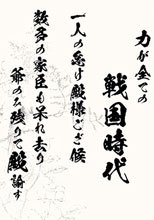 力が全ての
戦国時代
一人の怠け殿様ござ候
数多の家臣も呆れ去り
爺のみ残りて殿諭す